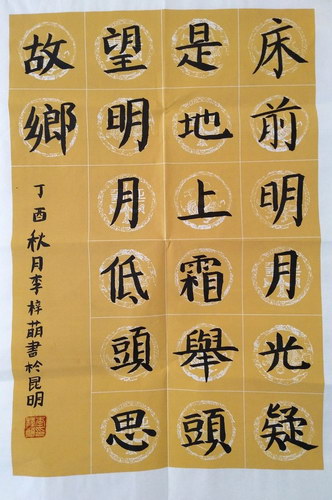 床前明月光疑
是地上霜舉頭
望明月低頭思
故鄉
丁酉秋月李梓萌書於昆明